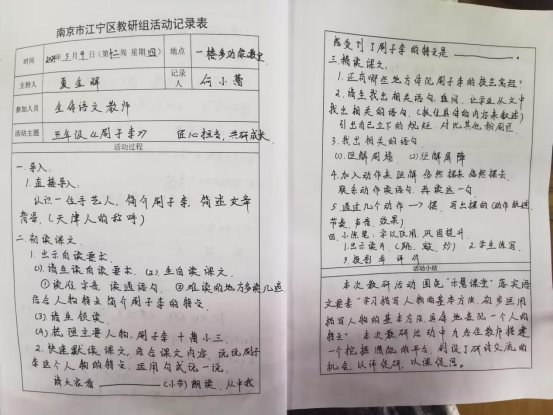 南京市江宁区教研组活动记录表
时间
2024年5月9日(第十二周 星期四)
地点
一楼多功能教室
主持人
夏金晖
记录人
何小慧
参加人员
全体语文教师
活动主题
五年级《刷子李》 匠心担当,共研成长
活动过程
一.导入.
1.直接导入.
认识一位手艺人,简介刷子李,简述文章
背景.(天津人的称呼)
二.初读课文.
1.出示自读要求.
(1).请生读自读要求. (2).生自读课文.
①读准字音,读通语句. ②难读的地方多读几遍
结合人物特点简介刷子李的特点.
(3)请生领读.
(4)梳理主要人物.刷子李 十 曹小三.
2.快速默读课文,结合课文内容,说说刷子
李这个人物的特点,运用句式说一说.
请大家看 (小节)朗读,从中我
感受到了刷子李的特点是 .
三.精读课文.
1.还有哪些地方体现刷子李的技艺高超?
2.请生找出相关语句.追问,让学生从文中
找出相关的语句.(抓住具体的内容来叙述)
引出自己立下的规矩.对比其他粉刷匠
3.找出相关的语句.
(1).理解周墙 (2).理解屏障
4.加入动作来理解 悠然摆来悠然摆去.
联系动作读语句.再读这一句
5.通过几个动作→摆.写出摆的(动作轨迹,
节奏,声音,效果)
四.小练笔:学以致用,巩固提升.
1.出示片(跳,做,炒) 2.学生练写.
3.投影 评价
活动小结
本次教研活动围绕"乐慧课堂"落实语
文要素"学习描写人物的基本方法,初步运用
描写人物的基本方法,具体地表现一个人的
特点"本次教研活动中为各位教师搭建
一个挖掘潜能的平台,创设了研读交流的
机会,以评促研,以课促思。